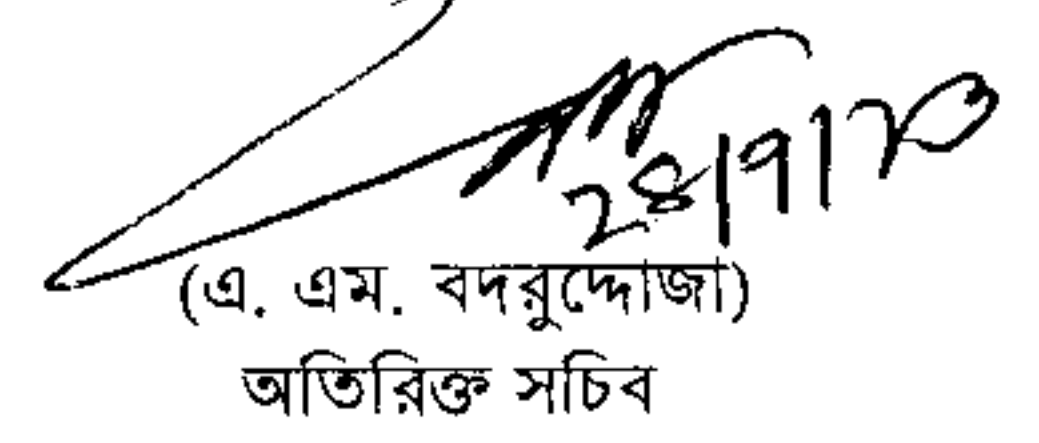 ২৪|৭|২৩
(এ. এম. বদরুদ্দোজা)
অতিরিক্ত সচিব